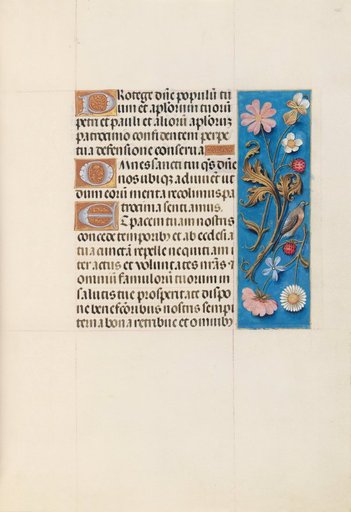 Protege dñe populũ tu
um et aplorum tuorũ
petri et pauli et alioru aplorũ
patrocinio confidentem perpe
tua defensione conserua
Omnes sancti tui q̃s dñe
nos ubiqȝ adiuuẽt ut
dum eorũ merita recolimus pa
trocinia senciamus.
Et pacem tuam nostris
concede temporibȝ et ab ecclesia
tua cunctam repelle nequitiam i
ter actus et voluntates nr̃as ⁊
omniũ famulorũ tuorum in
salutis tue prosperitate dispo
ne benefcõribus nostris sempi
terna bona retribue et omnibȝ